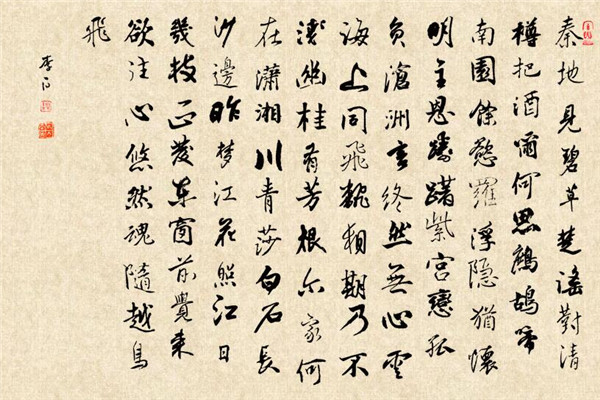 秦地見碧草楚謠對清
樽把酒爾何思鷓鴣啼
南園餘慾羅浮隱猶懷
明主恩躊躇紫宮戀孤
負滄洲言終然無心雲
海上同飛翻相期乃不
淺幽桂有芳根尔家何
在瀟湘川青莎白石長
沙邊昨梦江花照江日
幾枝正發東窗前覺來
欲往心悠然魂隨越鳥
飛
李白